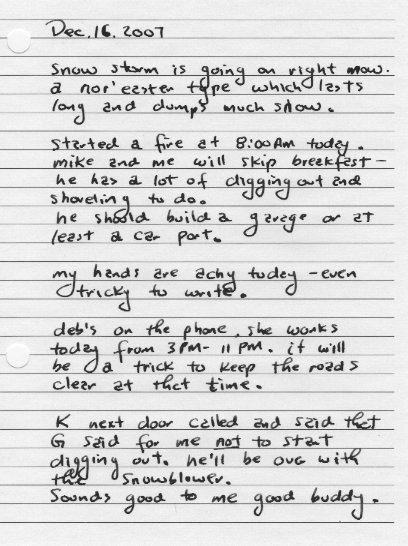 Dec. 16. 2007
Snow storm is going on right now.
a nor'easter type which lasts
long and dumps much snow.
Started a fire at 8:00 AM today.
mike and me will skip breakfast -
he has a lot of digging out and
shoveling to do.
he should build a garage or at
least a car port.
my hands are achy today - even
tricky to write.
deb's on the phone, she works
today from 3 PM - 11 PM. it will
be a trick to keep the roads
clear at that time.
K next door called and said that
G said for me not to start
digging out. he'll be out with
the snowblower.
Sounds good to me good buddy.